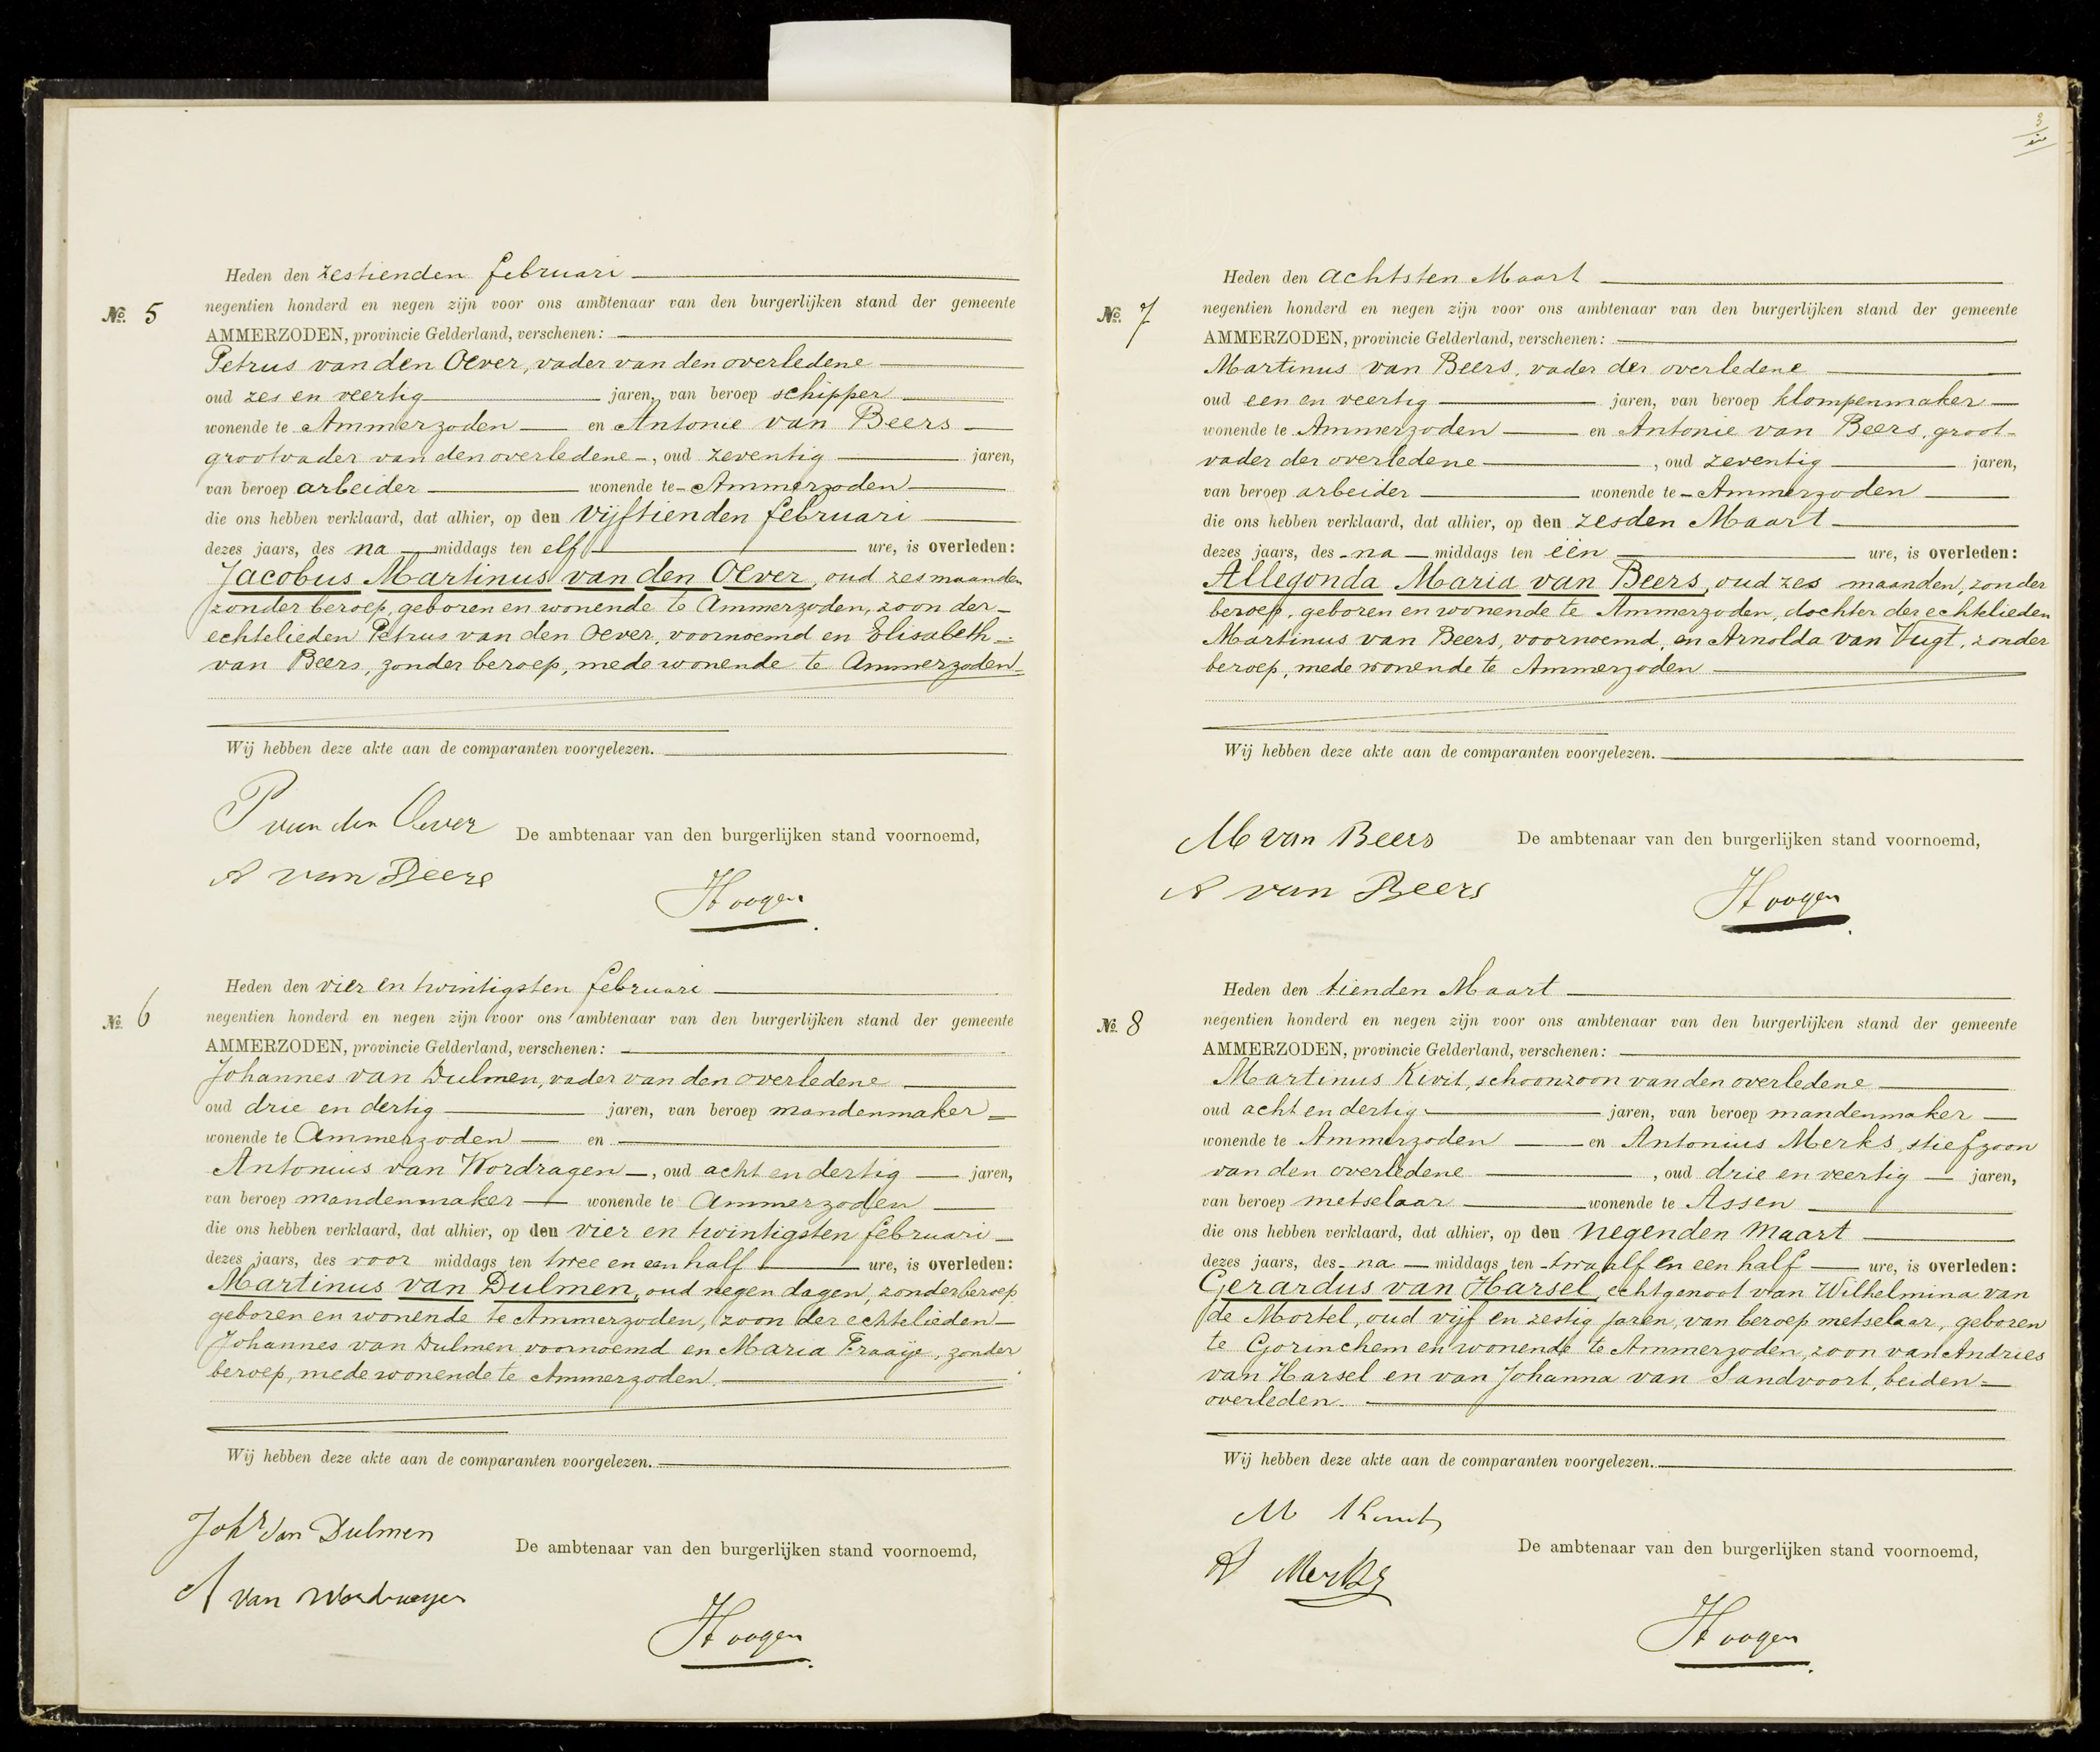 Heden den zestienden februari
No. 5
negentien honderd en negen zijn voor ons ambtenaar van den burgerlijken stand der gemeente
AMMERZODEN, provincie Gelderland, verschenen:
Petrus van den Oever, vader van den overledene
oud zes en veertig jaren, van beroep schipper
wonende te Ammerzoden en Antonie van Beers
grootvader van den overledene, oud zeventig jaren,
van beroep arbeider wonende te Ammerzoden
die ons hebben verklaard, dat alhier, op den vijftienden februari
dezes jaars, des na middags ten elf ure, is overleden:
Jacobus Martinus van den Oever, oud zes maanden
zonder beroep, geboren en wonende te Ammerzoden, zoon der
echtelieden Petrus van den Oever, voornoemd en Elisabeth
van Beers, zonder beroep, mede wonende te Ammerzoden
Wij hebben deze akte aan de comparanten voorgelezen.
P van den Oever
De ambtenaar van den burgerlijken stand voornoemd,
A van Beers
Hoogen
Heden den vier en twintigsten februari
No. 6
negentien honderd en negen zijn voor ons ambtenaar van den burgerlijken stand der gemeente
AMMERZODEN, provincie Gelderland, verschenen:
Johannes van Dulmen, vader van den overledene
oud drie en dertig jaren, van beroep mandenmaker
wonende te Ammerzoden en
Antonius van Wordragen, oud acht en dertig jaren,
van beroep mandenmaker wonende te Ammerzoden
die ons hebben verklaard, dat alhier, op den vier en twintigsten februari
dezes jaars, des voor middags ten twee en een half ure, is overleden:
Martinus van Dulmen, oud negen dagen, zonder beroep
geboren en wonende te Ammerzoden, zoon der echtelieden
Johannes van Dulmen voornoemd en Maria Fraaije, zonder
beroep, mede wonende te Ammerzoden.
Wij hebben deze akte aan de comparanten voorgelezen.
Johs van Dulmen
De ambtenaar van den burgerlijken stand voornoemd,
A van Wordragen
Hoogen
3
Heden den achtsten Maart
No. 7
negentien honderd en negen zijn voor ons ambtenaar van den burgerlijken stand der gemeente
AMMERZODEN, provincie Gelderland, verschenen:
Martinus van Beers, vader der overledene
oud een en veertig jaren, van beroep klompenmaker
wonende te Ammerzoden en Antonie van Beers, groot-
vader der overledene, oud zeventig jaren,
van beroep arbeider wonende te Ammerzoden
die ons hebben verklaard, dat alhier, op den zesden Maart
dezes jaars, des na middags ten één ure, is overleden:
Allegonda Maria van Beers, oud zes maanden, zonder
beroep, geboren en wonende te Ammerzoden, dochter der echtelieden
Martinus van Beers, voornoemd, en Arnolda van Vugt, zonder
beroep, mede wonende te Ammerzoden
Wij hebben deze akte aan de comparanten voorgelezen.
M van Beers
De ambtenaar van den burgerlijken stand voornoemd,
A van Beers
Hoogen
Heden den tienden Maart
No. 8
negentien honderd en negen zijn voor ons ambtenaar van den burgerlijken stand der gemeente
AMMERZODEN, provincie Gelderland, verschenen:
Martinus Kivit, schoonzoon van den overledene
oud acht en dertig jaren, van beroep mandenmaker
wonende te Ammerzoden en Antonius Merks, stiefzoon
van den overledene, oud drie en veertig jaren,
van beroep metselaar wonende te Assen
die ons hebben verklaard, dat alhier, op den negenden Maart
dezes jaars, des na middags ten twaalf en een half ure, is overleden:
Gerardus van Harsel, echtgenoot van Wilhelmina van
de Mortel, oud vijf en zestig jaren, van beroep metselaar, geboren
te Gorinchem en wonende te Ammerzoden, zoon van Andries
van Harsel en van Johanna van Sandvoort, beiden
overleden.
Wij hebben deze akte aan de comparanten voorgelezen.
M
De ambtenaar van den burgerlijken stand voornoemd,
A Merks
Hoogen